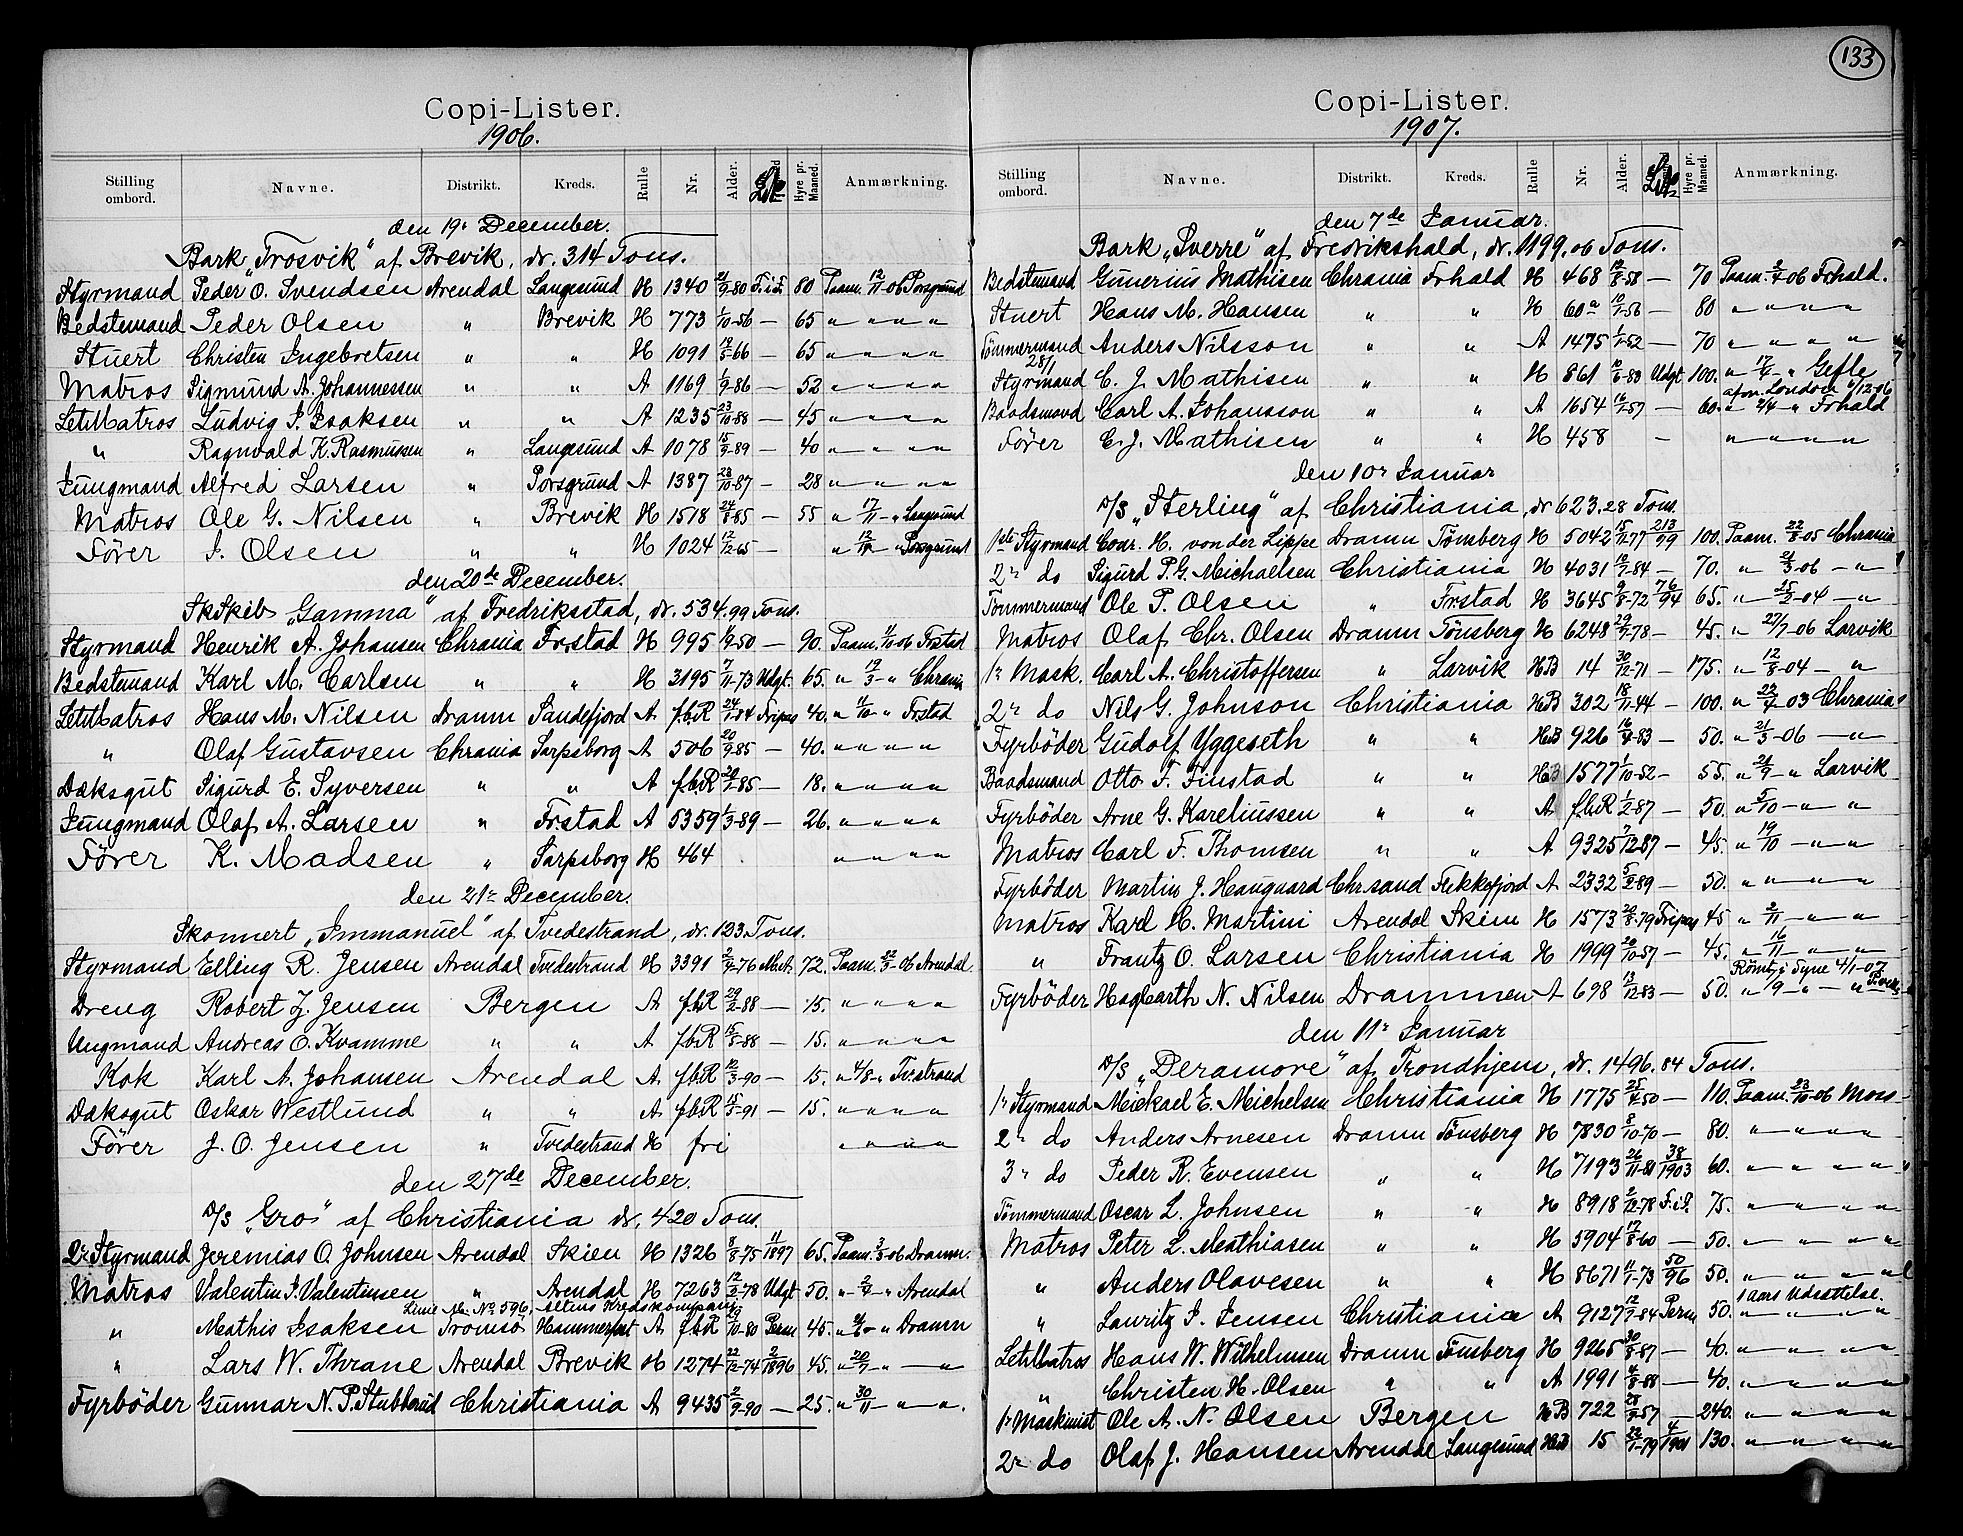 Copi-Lister.
1906.
Stilling ombord. Navne. Distrikt. Kreds. Rulle Nr. Alder. Hyre pr. Maaned. Anmærkning.
den 19. December.
Bark „Trosvik“ af Brevik, dr. 314 Tons.
Styrmand Peder O. Svendsen Arendal Langesund H 1340 21/9-80 F.i.F. 80 Paam. 12/11-06 Porsgrund
Bedstemand Peder Olsen " Brevik H 773 1/10-56 — 65 " — " — " — "
Stuert Christen Ingebretsen " " H 1091 19/5-66 — 65 " — " — " — "
Matros Sigmund A. Johannessen " " A 1169 1/9-86 — 52 " — " — " — "
LetMatros Ludvig I. Isaksen " " A 1235 23/10-88 — 45 " — " — " — "
" Ragnvald K. Rasmussen " Langesund A 1078 15/9-89 — 40 " — " — " — "
Jungmand Alfred Larsen " Porsgrund A 1387 28/10-87 — 28 " — " — " — "
Matros Ole G. Nilsen " Brevik H 1518 24/8-85 — 55 " 17/11 - " Langesund
Förer J. Olsen " " H 1024 12/12-65 " 12/11 - " Porsgrund
den 20de December.
SkSkib „Gamma“ af Fredriksstad, dr. 534.99 Tons.
Styrmand Henrik A. Johansen Chrania Frstad H 995 1/9-50 — 90. Paam. 11/10-06 Frstad
Bedstemand Karl M. Carlsen " " H 3195 7/11-73 Udgt. 65. " 19/3 - " Chrania
LetMatros Hans M. Nilsen Dramn Sandefjord A fbR 24/1-84 Fripas 40. " 11/10 - " Frstad
" Olaf Gustavsen Chrania Sarpsborg A 506 20/9-85 — 40. " — " — " — "
Dæksgut Sigurd E. Syversen " " A fbR -85 — 18. " — " — " — "
Jungmand Olaf A. Larsen " Frstad A 5359 1/3-89 — 26. " — " — " — "
Förer K. Madsen " Sarpsborg H 464 " — " — " — "
den 21. December.
Skonnert „Immanuel“ af Tvedestrand, dr. 133 Tons.
Styrmand Elling R. Jensen Arendal Tvedestrand H 3391 2/9-76 72. Paam. 22/3-06 Arendal.
Dreng Robert Z. Jensen Bergen A fbR 29/2-88 — 15. " — " — " — "
Ungmand Andreas O. Kvamme " " A fbR 15/5-88 — 15. " — " — " — "
Kok Karl A. Johansen Arendal A fbR 12/3-90 — 15. " 4/8 - " Tvstrand
Dæksgut Oskar Westlund " " A fbR 15/5-91 — 15. " — " — " — "
Förer J. O. Jensen " Tvedestrand H fri " — " — " — "
den 27de December.
D/S „Gro“ af Christiania dr. 420 Tons.
2r Styrmand Jeremias O. Johnsen Arendal Skien H 1326 8/8-75 11/1897 65. Paam. 3/3-06 Dramn.
Matros Valentin I. Valentinsen " Arendal H 7263 12/2-78 Udgt 50. " 2/4 - " Arendal
Linie Nr. No 596, Altens Kredskompani
" Mathis Isaksen Tromsö Hammerfest A fbR 10-80 Perm 45. " — " Dramn
" Lars W. Thrane Arendal Brevik H 1274 22/12-74 2/1896 45. " 20/7 — " — "
Fyrböder Gunnar N. P. Stubberud Christiania A 9435 2/9-90 — 25. " 30/11 — " — "
133
Copi-Lister.
1907.
Stilling ombord. Navne. Distrikt. Kreds. Rulle Nr. Alder. Hyre pr. Maaned. Anmærkning.
den 7de Januar.
Bark „Sverre“ af Fredrikshald, dr. 1199.06 Tons.
Bedstemand Gunerius Mathisen Chrania Frhald H 468 12/8-58 — 70 Paam. 2/4-06 Frhald.
Stuert Hans M. Hansen " " H 60a 10/1-56 — 80 " — " — " — "
Tömmermand Anders Nilsson " " A 1475 1/1-52 — 70 " — " — " — "
28/1
Styrmand C. J. Mathisen " " H 861 10/6-83 Udgt 100. " 17/4 " Gefle
afm. London 4/12-06
Baadsmand Carl A. Johansson " " A 1654 16/1-57 — 60. " 2/4 - " Frhald
Förer C. J. Mathisen " " H 458 — " — " — " — "
den 10r Januar
D/S „Sterling“ af Christiania, dr 623.28 Tons.
1ste Styrmand Conr. H. von der Lippe Dramn Tönsberg H 5042 15/12-77 213/99 100. Paam. 22/8-05 Chrania
2r do Sigurd P. G. Michaelsen Christiania H 4031 12/7-84 — 70. " 21/3-06 — " —
Tömmermand Ole P. Olsen " Frstad H 3645 9/8-72 76/94 65. " 15/2-04 — " —
Matros Olaf Chr. Olsen Dramn Tönsberg H 6248 29/7-78 — 45. " 27/7-06 Larvik
1r Mask. Carl A. Christoffersen " Larvik HB 14 30/12-71 — 175. " 12/8-04 — "
2r do Nils G. Johnson Christiania HB 302 18/11-44 — 100. " 22/7-03 Chrania
Fyrböder Gudolf Yggeseth " " HB 926 16/4-83 — 50. " 21/3-06 — " —
Baadsmand Otto F. Finstad " " HB 1577 1/10-52 — 55. " 21/9 - " Larvik
Fyrböder Arne G. Kareliussen " " A fbR 1/2-87 — 50. " 5/10 — " — "
Matros Carl F. Thomsen " " A 9325 7/12 87 — 45. " 19/10 — " — "
Fyrböder Martin J. Haugaard Chr.sand Flekkefjord A 2332 5/2-89 — 50. " — " — " — "
Matros Karl H. Martini Arendal Skien H 1573 20/8-79 Fripas 45 " 2/11 — " — "
" Frantz O. Larsen Christiania H 1999 20/10-57 — 45. " 16/11 — " — "
Römt i Tyne 4/1-07
Fyrböder Hagbarth N. Nilsen Drammen A 698 13/12-83 — 50. " /9 - " — "
den 11r Januar
D/S „Deramore“ af Trondhjem, dr. 1496.84 Tons.
1r Styrmand Mickael E. Michelsen Christiania H 1775 25/4-50 — 110. Paam. 23/10-06 Moss
2r do Anders Arnesen Dramn Tönsberg H 7830 8/10-70 — 80. " — " — " — "
3r do Peder R. Evensen " " H 7193 26/11-81 38/1903 60. " — " — " — "
Tömmermand Oscar L. Johnsen " " H 8918 2/12-78 F.i.F. 75. " — " — " — "
Matros Peter L. Mathiasen " " H 5904 12/8-60 — 50. " — " — " — "
" Anders Olavesen " " H 8671 11/1-73 50/96 50. " — " — " — "
1 Aars Udsættelse.
" Lauritz J. Jensen Christiania A 9127 12/9-84 Perm 50. " — " — " — "
LetMatros Hans W. Wilhelmsen Dramn Tönsberg H 9265 30/8-87 — 40. " — " — " — "
" Christen H. Olsen " " A 1991 4/8-88 — 40. " — " — " — "
1r Maskinist Ole A. N. Olsen Bergen HB 722 28/9-57 — 240. " — " — " — "
2r do Olaf J. Hansen Arendal Langesund HB 15 22/1-79 4/1901 130. " — " — " — "